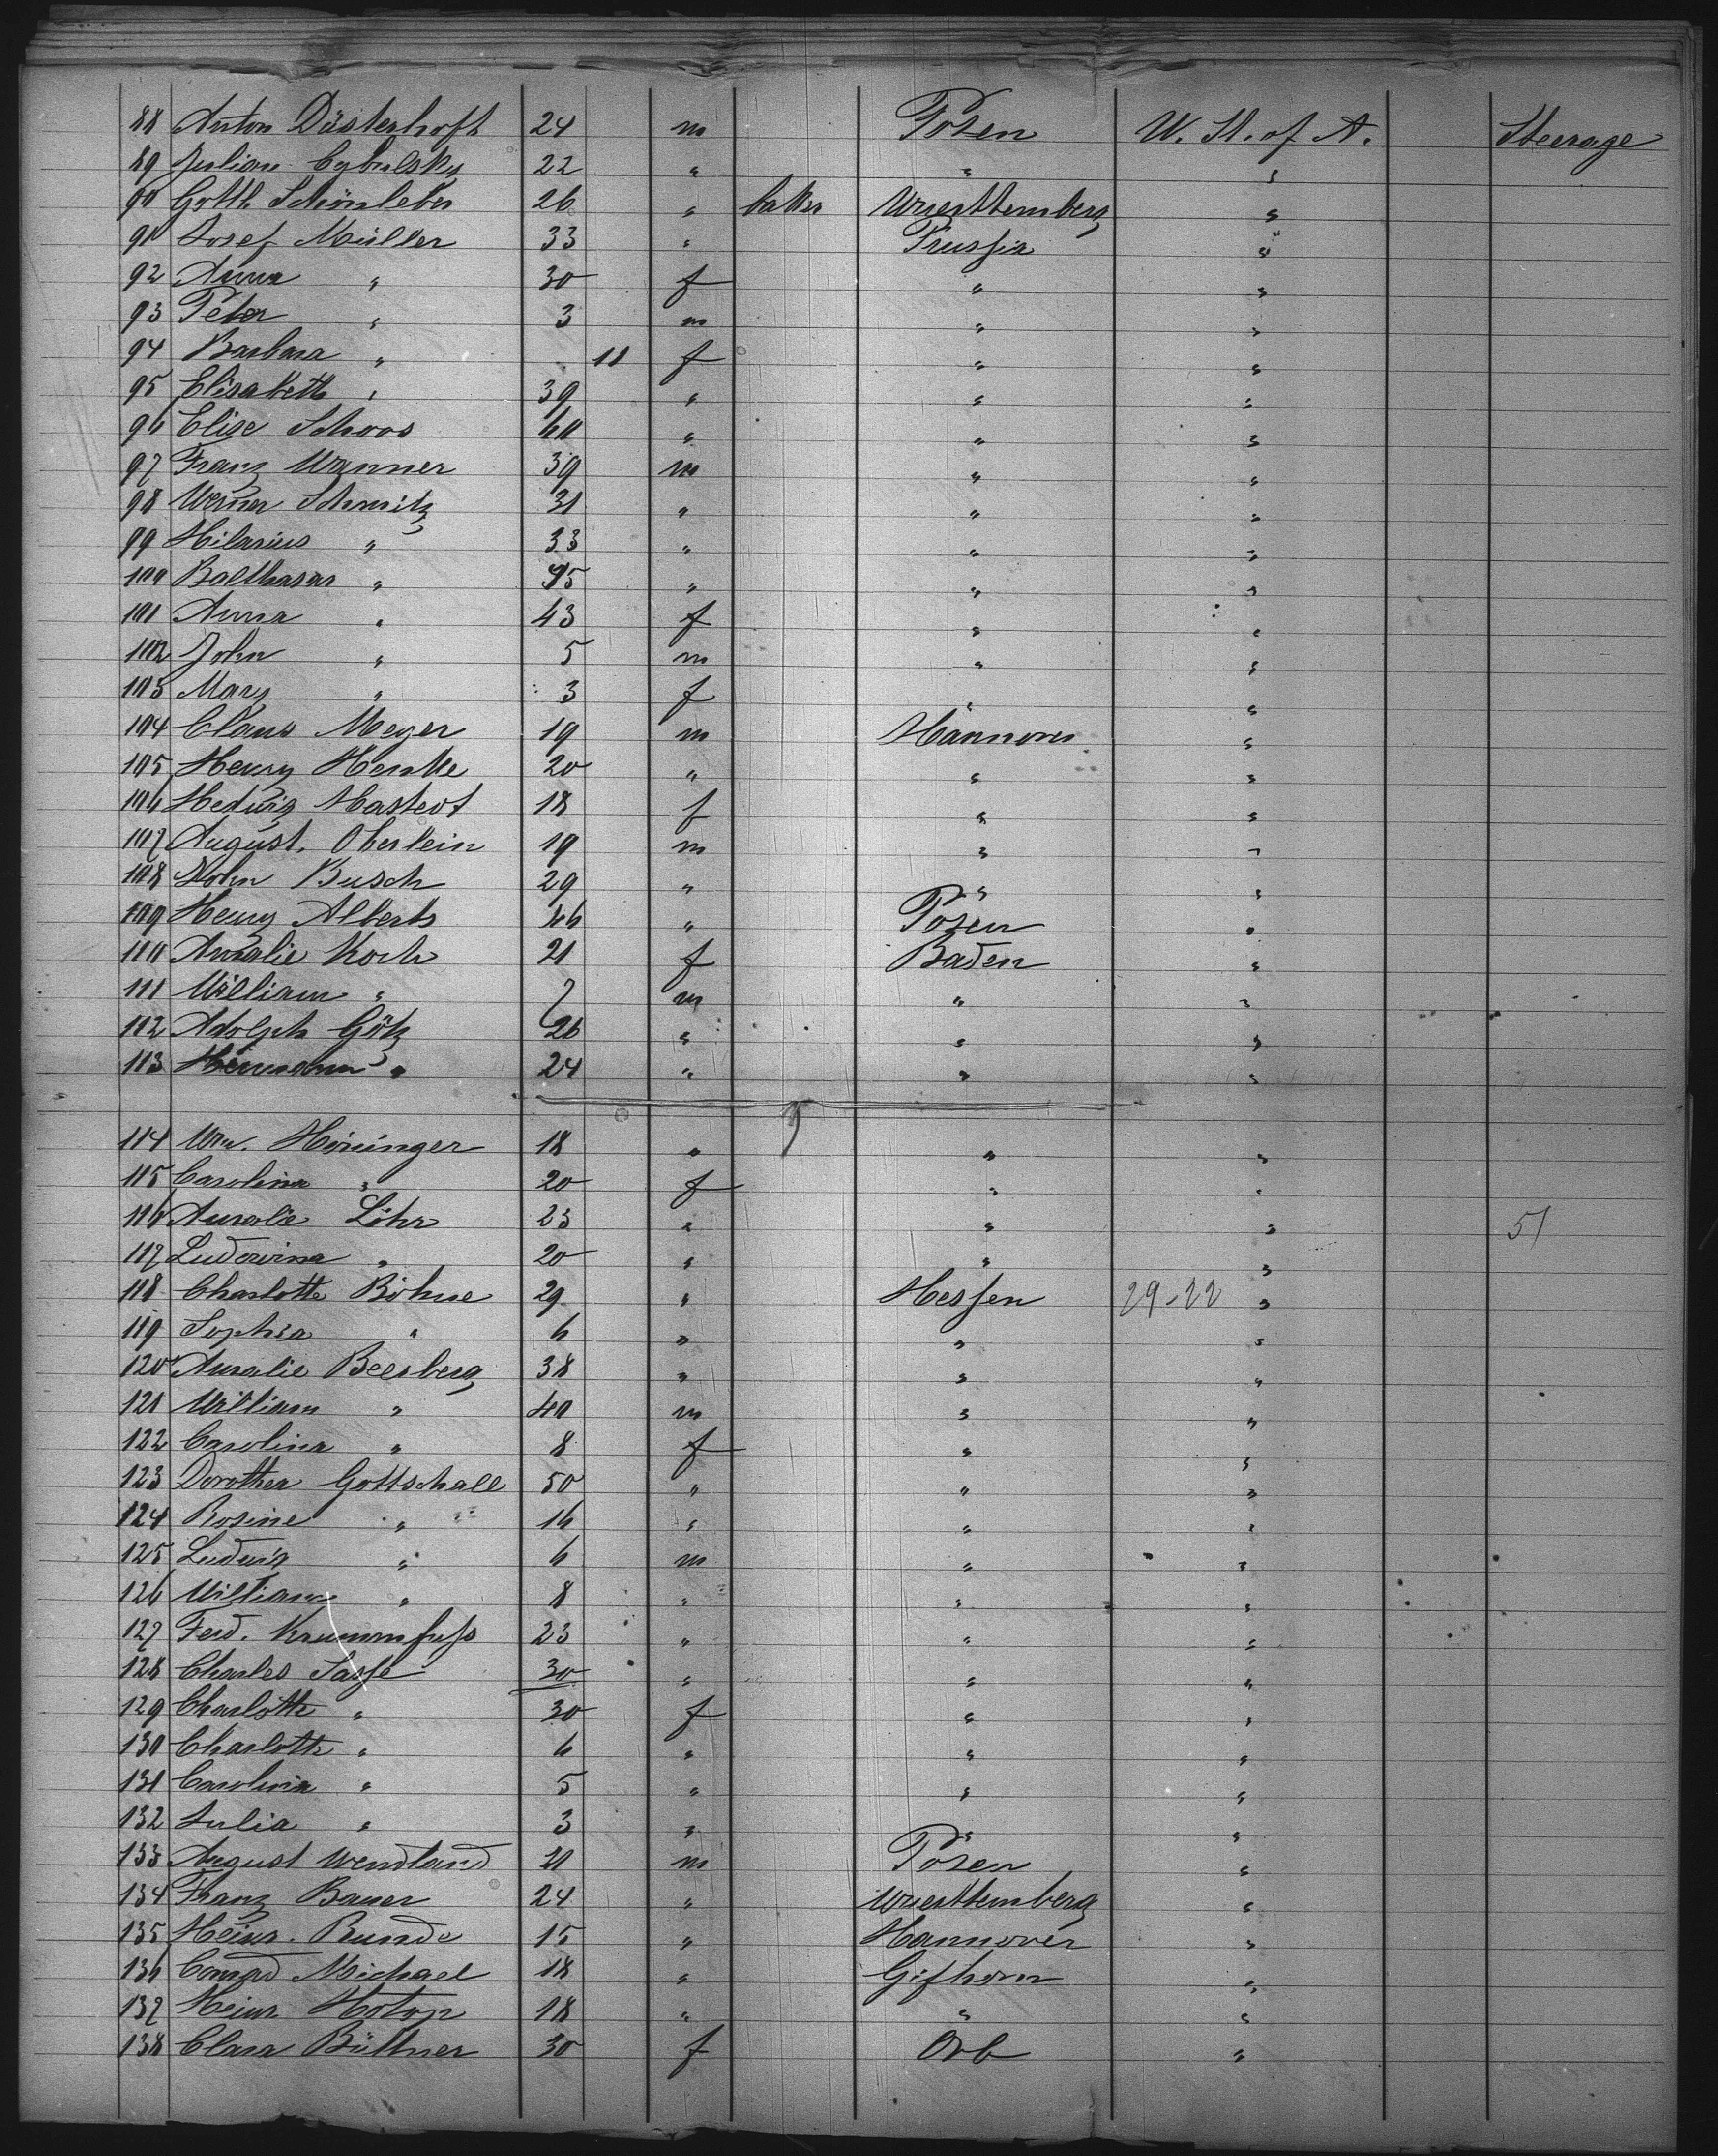 88 Anton Düsterhoft 24 m Posen U. St. of A. Steerage
89 Julian Cybulsky 22 " " "
90 Gottl. Schönleber 26 " baker Wuerttemberg "
91 Josef Müller 33 " Prussia "
92 Anna " 30 f " "
93 Peter " 3 m " "
94 Barbara " 11 f " "
95 Elisabeth " 39 " " "
96 Elise Schoos 60 " " "
97 Franz Wanner 39 m " "
98 Werner Schmitz 31 " " "
99 Hilarius " 33 " " "
100 Balthasar " 45 " " "
101 Anna " 43 f " "
102 John " 5 m " "
103 Mary " 3 f " "
104 Claus Meyer 19 m Hannover "
105 Henry Henke 20 " " "
106 Hedwig Mastedt 18 f " "
107 August. Oberlein 19 m " "
108 John Busch 29 " " "
109 Henry Alberts 46 " Posen "
110 Amalie Koch 21 f Baden "
111 William " 7 m " "
112 Adolph Götz 26 " " "
113 Hermann " 24 " " "
114 Wm. Höninger 18 " " "
115 Carolina " 20 f " "
116 Amalie Löhr 23 " " " 51
117 Ludowina " 20 " " "
118 Charlotte Böhne 29 " Hessen 29-22 "
119 Sophia " 6 " " "
120 Amalie Beesberg 38 " " "
121 William " 40 m " "
122 Carolina " 8 f " "
123 Dorothea Gottschall 50 " " "
124 Rosine " 16 " " "
125 Ludwig " 6 m " "
126 William " 8 " " "
127 Ferd. Krummfuss 23 " " "
128 Charles Sasse 30 " " "
129 Charlotte " 30 f " "
130 Charlotte " 6 " " "
131 Carolina " 5 " " "
132 Julia " 3 " " "
133 August Wendland 21 m Posen "
134 Franz Bauer 24 " Wuerttemberg "
135 Heinr. Bunde 15 " Hannover "
136 Conrad Michael 18 " Gifhorn "
137 Heinr. Hotop 18 " " "
138 Clara Büttner 30 f Orb "